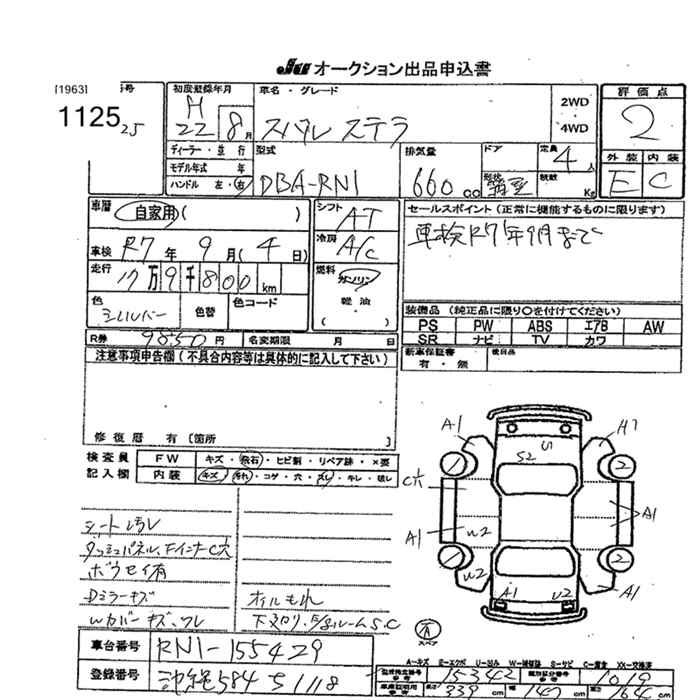 JU オークション出品申込書
[1963]
号
1125
25
初度登録年月
H
22 8 月
車名・グレード
スバル ステラ
2WD
4WD
評価点
2
外装 内装
E C
ディーラー・並行
モデル年式 年
ハンドル 左・右
型式
DBA-RN1
排気量
660 CC
ドア
形状
定員
4 人
積載
Kg
車歴
自家用 ( )
車検 R7 年 9 月 ( 4 日)
走行 17 万 9 千 800 km
色
シルバー
色替
色コード
シフト
AT
冷房
A/C
燃料
ガソリン
軽油
( )
セールスポイント (正常に機能するものに限ります)
車検R7年9月まで
装備品 (純正品に限り○を付けてください)
PS PW ABS エアB AW
SR ナビ TV カワ
新車保証書
有・無
後日品
R券 9850 円 名変期限 月 日
注意事項申告欄 (不具合内容等は具体的に記入して下さい)
修復歴 有 [箇所 ]
検査員
記入欄
FW キズ・飛石・ヒビ割・リペア跡・×要
内装 キズ・汚れ・コゲ・穴・スレ・キレ・破レ
シート汚レ
ダッシュパネル、Fインナー C穴
ボウセイ有
Dミラーキズ
Wカバーキズ・ワレ
オイルもれ
下廻り、E/gルームS.C
A1
U1
S2
H7
1
2
C穴
A1
A1
W2
1
2
W2
A1
U2
A1
A
スペア
車台番号 RN1-155429
登録番号 沖縄584 ち 1118
A-キズ E-エクボ U-凹み W-補修跡 S-サビ C-腐食 XX-交換済
型式指定番号 15342 類別区分番号 1019
長さ 339 cm 幅 147 cm 高さ 164 cm